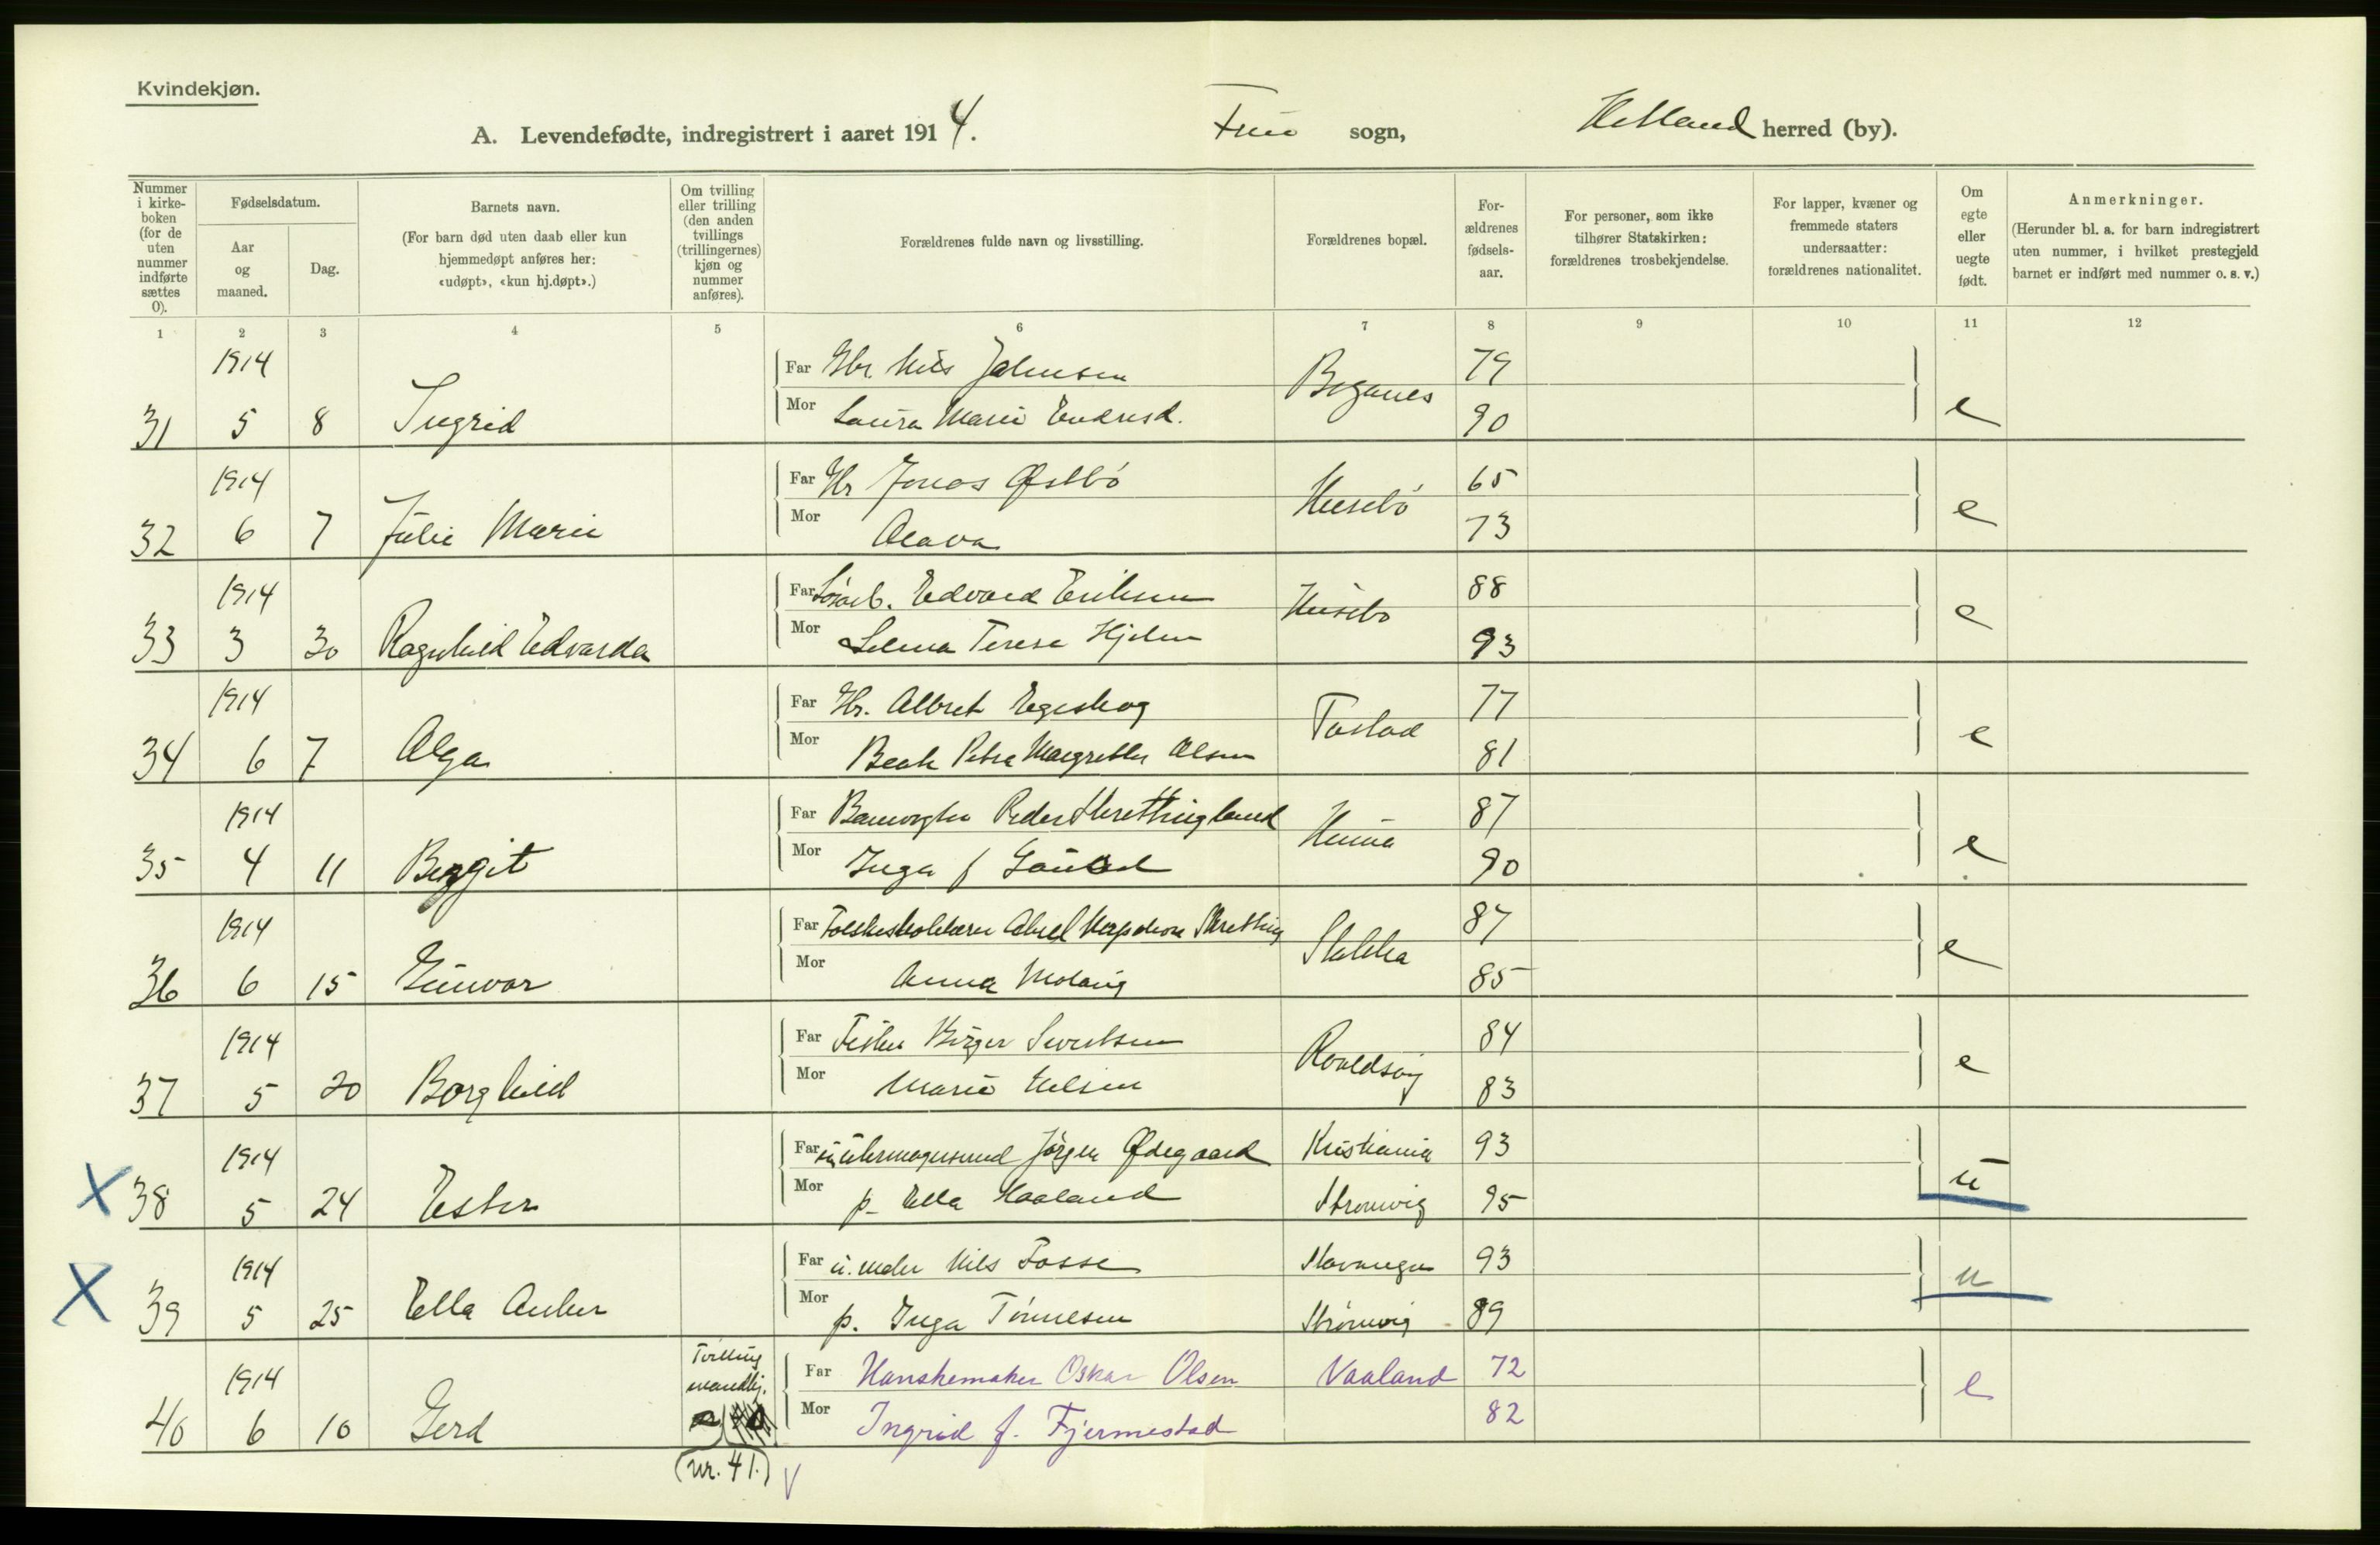 Kvindekjøn.
A. Levendefødte, indregistrert i aaret 1914. Frue sogn, Hetland herred (by).
Nummer i kirke-boken (for de uten nummer indførte sættes 0).
Fødselsdatum.
Aar og maaned.
Dag.
Barnets navn.
(For barn død uten daab eller kun hjemmedøpt anføres her: «udøpt», «kun hj.døpt».)
Om tvilling eller trilling (den anden tvillings (trillingernes) kjøn og nummer anføres).
Forældrenes fulde navn og livsstilling.
Forældrenes bopæl.
For-ældrenes fødsels-aar.
For personer, som ikke tilhører Statskirken: forældrenes trosbekjendelse.
For lapper, kvæner og fremmede staters undersaatter: forældrenes nationalitet.
Om egte eller uegte født.
Anmerkninger.
(Herunder bl. a. for barn indregistrert uten nummer, i hvilket prestegjeld barnet er indført med nummer o. s. v.)
1 2 3 4 5 6 7 8 9 10 11 12
1914 Far Hr. Nils Johnsen Beganes 79
31 5 8 Ingrid Mor Laura Marie Endresd. 90 e
1914 Far Hr Jonas Østbö Husebö 65
32 6 7 Julie Marie Mor Olava 73 e
1914 Far Lösarb. Edvard Eriksen Husebö 88
33 3 30 Ragnhild Edvarda Mor Selma Terese Hjelm 93 e
1914 Far Hr. Albret Egeskog Tastad 77
34 6 7 Olga Mor Beate Petra Margrethe Olsen 81 e
1914 Far Peder Skrettingland Hinna 87
35 4 11 Bergit Mor Inga f 90 e
1914 Far Folkeskolelærer Skretting Stokka 87
36 6 15 Gunvor Mor Anna 85 e
1914 Far Fisker Birger Sivertsen Roaldsøy 84
37 5 20 Borghild Mor Marie Nilsen 83 e
1914 Far Jörgen Ødegaard Kristiania 93
X 38 5 24 Ester Mor p. Ella Haaland Strømvig 95 u
1914 Far Nils Fosse Stavanger 93
X 39 5 25 Ella Mor p. Inga Tönnesen Strömvig 89 u
1914 Tvilling mandkj. Far Hanskemaker Oskar Olsen Vaaland 72
40 6 10 Gerd Mor Ingrid f. Fjermestad 82 e
(nr. 41.) V